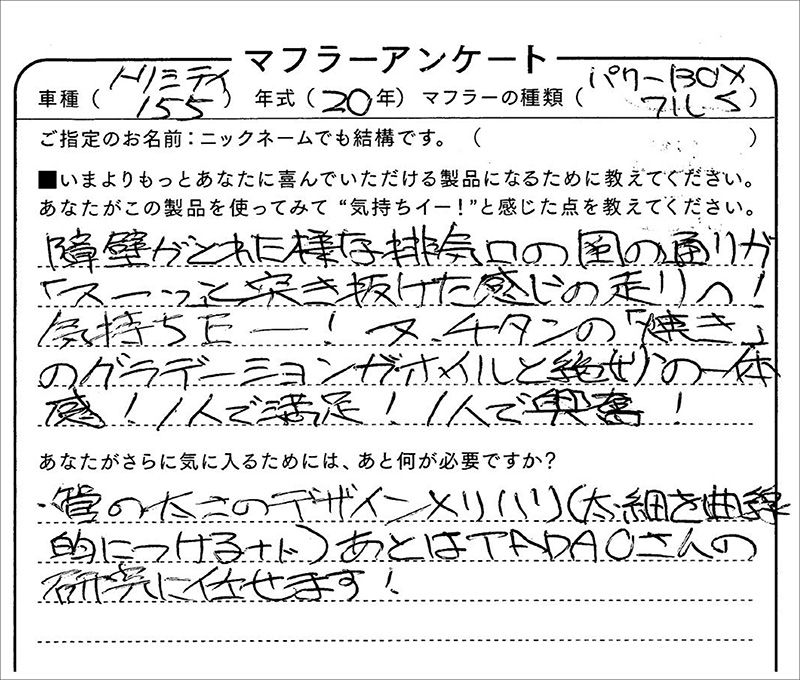 マフラーアンケート
車種（トリシティ155）年式（20年）マフラーの種類（パワーBOXフルS）
ご指定のお名前：ニックネームでも結構です。（ ）
■いまよりもっとあなたに喜んでいただける製品になるために教えてください。
あなたがこの製品を使ってみて“気持ちイー！”と感じた点を教えてください。
障壁がとれた様な排気口の風の通りが
「スーーっ」と突き抜けた感じの走りへ！
気持ちE—！又、チタンの「焼き」
のグラデーションがホイルと絶妙の一体
感！1人で満足！1人で興奮！
あなたがさらに気に入るためには、あと何が必要ですか？
・管の太さのデザインメリハリ（太細を曲線
的につけるナド）あとはTADAOさんの
研究に任せます！